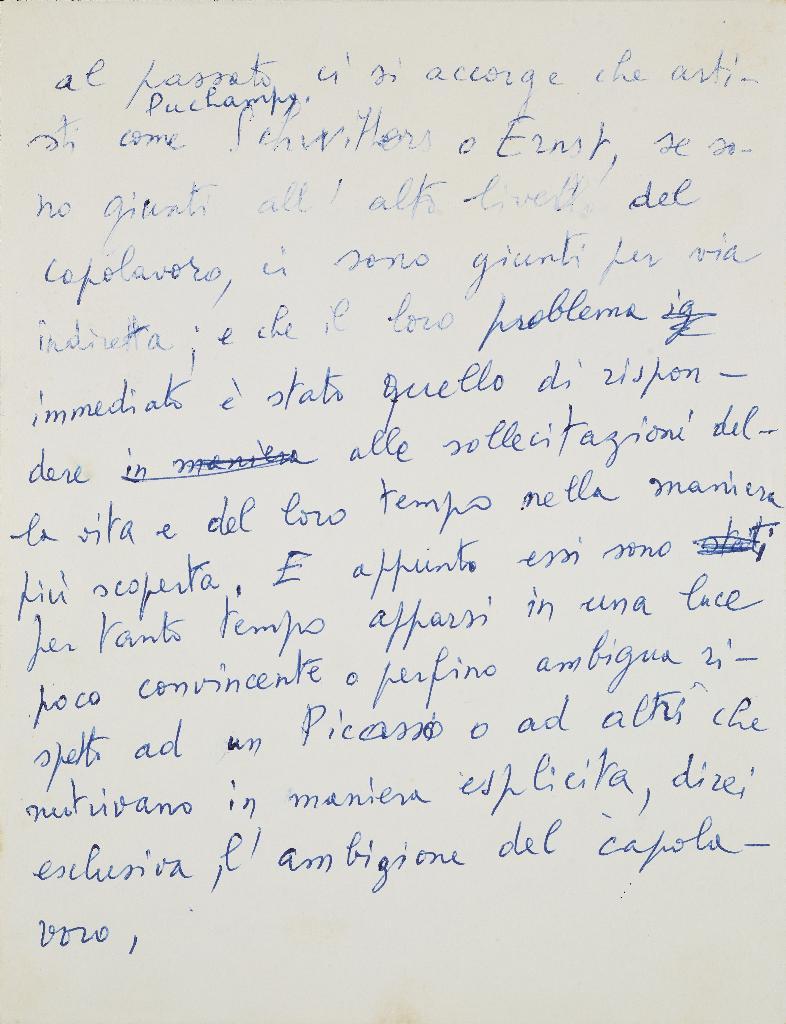 al passato, ci si accorge che arti-
Duchamp,
sti come Schwitters o Ernst, se so-
no giunti all'alto livello del
capolavoro, ci sono giunti per via
indiretta; e che il loro problema ig
immediato è stato quello di rispon-
dere in maniera alle sollecitazioni del-
la vita e del loro tempo nella maniera
più scoperta. E appunto essi sono stati
per tanto tempo apparsi in una luce
poco convincente o perfino ambigua ri-
spetto ad un Picasso o ad altri che
nutrivano in maniera esplicita, direi
esclusiva, l'ambizione del capola-
voro,